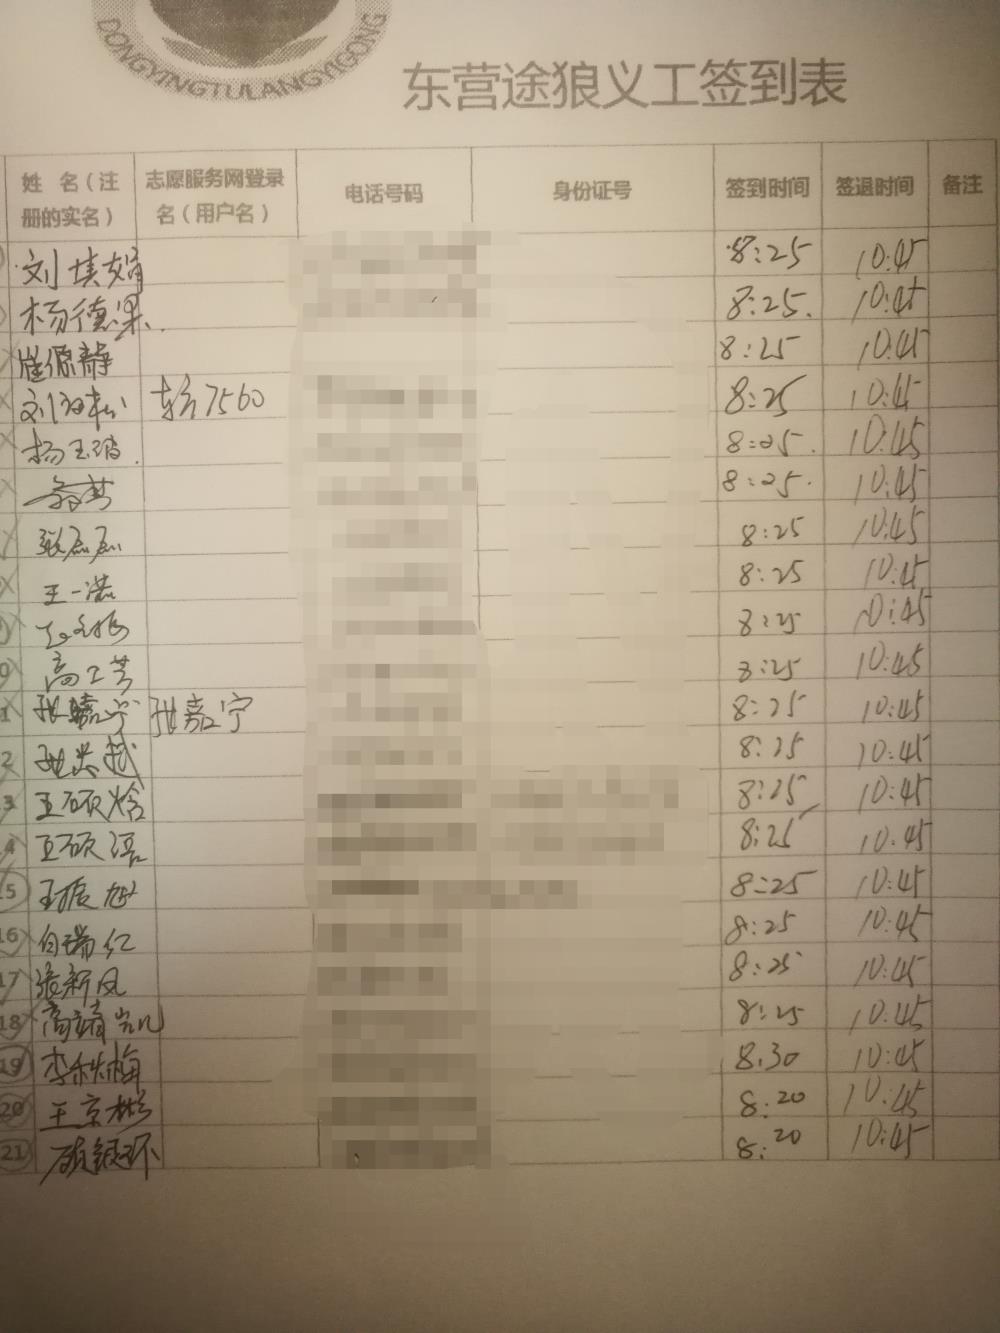 DONGYINGTULANGYIGONG
东营途狼义工签到表
姓 名（注册的实名） 志愿服务网登录名（用户名） 电话号码 身份证号 签到时间 签退时间 备注
刘 8:25 10:45
杨德果 8:25 10:45
崔源静 8:25 10:45
刘 松 7560 8:25 10:45
杨玉 8:25 10:45
8:25 10:45
张磊磊 8:25 10:45
王一浩 8:25 10:45
8:25 10:45
高 芳 8:25 10:45
1 张嘉宁 张嘉宁 8:25 10:45
2 张 越 8:25 10:45
3 王硕 8:25 10:45
4 王硕语 8:25 10:45
5 王振旭 8:25 10:45
16 白瑞红 8:25 10:45
17 张新凤 8:25 10:45
18 高靖 8:25 10:45
19 李秋梅 8:30 10:45
20 王京彬 8:20 10:45
21 环 8:20 10:45